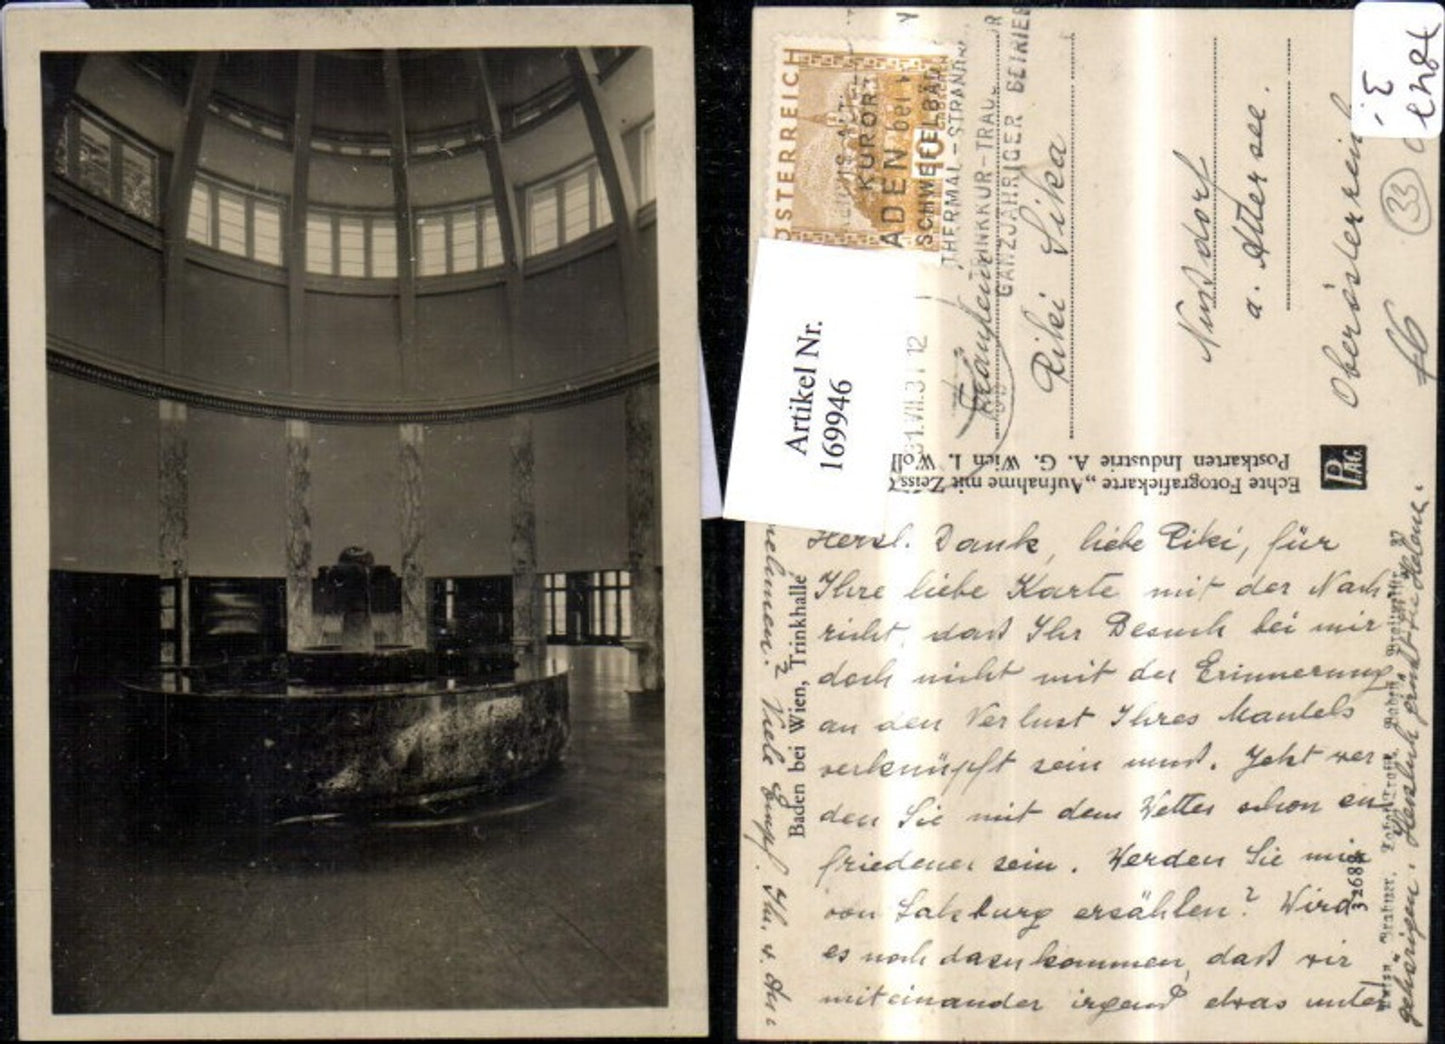 ÖSTERREICH
10
KURORT
BADEN bei
SCHWEFELBÄD
THERMAL-STRANDB
TRINKKUR-TRAUB
GANZJÄHRIGER BETRIEB
31.VII.31 12
Fräulein
Riki Sika
Nußdorf
a. Attersee.
Oberösterreich
33
Artikel Nr.
169946
Echte Fotografiekarte „Aufnahme mit Zeiss
Postkarten Industrie A. G. Wien I. Woll
PAG.
Herzl. Dank, liebe Riki, für
Ihre liebe Karte mit der Nach-
richt, daß Ihr Besuch bei mir
doch nicht mit der Erinnerung
an den Verlust Ihres Mantels
verknüpft sein muß. Jetzt wer-
den Sie mit dem Wetter schon zu-
friedener sein. Werden Sie mir
von Salzburg erzählen? Wird
es noch dazu kommen, daß wir
miteinander irgend etwas unter
nehmen? Viele Empf. Ihr. v. An
gehörigen. Herzlich grüßt Sie Helene.
Baden bei Wien, Trinkhalle
32688